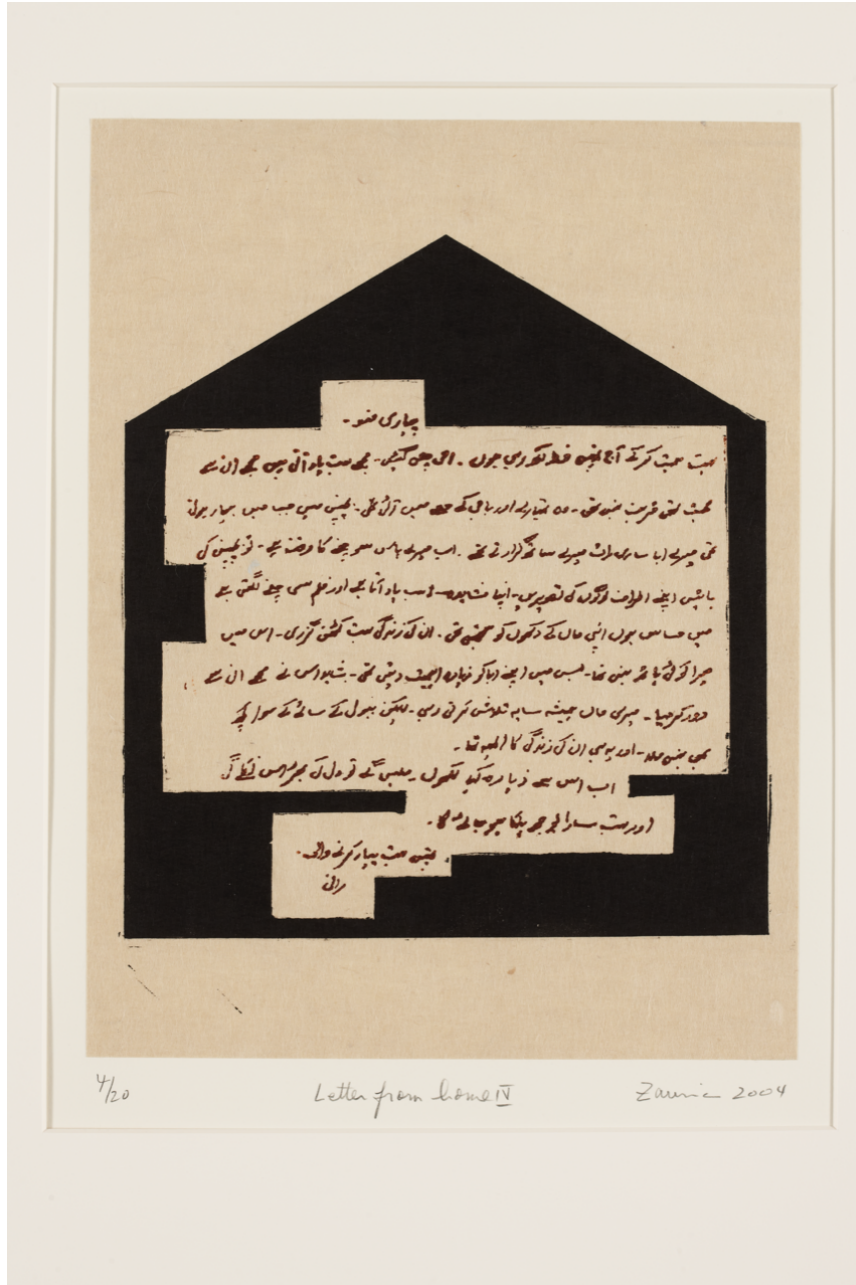 پیاری منو۔
بہت ہمت کرکے آج تمہیں خط لکھ رہی ہوں۔ امی چلی گئیں۔ مجھے بہت یاد آتی ہیں مجھے ان سے
بہت قربت نہیں تھی۔ وہ تمہارے اور باجی کے حصے میں آئی تھی۔ بچپن میں جب میں بیمار ہوتی
تھی میرے ابا ساری رات میرے ساتھ گزارتے تھے۔ اب میرے پاس سوچنے کا وقت ہے۔ تو بچپن کی
باتیں اپنے اطراف لوگوں کی تصویریں۔ اپنا سب یاد آتا ہے اور فلم سی چلنے لگتی ہے
میں حساس ہوں اپنی ماں کے دکھوں کو سمجھتی تھی۔ ان کی زندگی بہت کٹھن گزری۔ اس میں
میرا کوئی ہاتھ نہیں تھا۔ بس میں اپنے ابا کو زیادہ اہمیت دیتی تھی۔ شاید اسی نے مجھے ان سے
دور کر دیا۔ میری ماں ہمیشہ سایہ تلاش کرتی رہی۔ لیکن ببول کے سائے کے سوا کچھ
بھی نہیں ملا۔ اور یہ ہی ان کی زندگی کا المیہ تھا۔
اب اس سے زیادہ کیا لکھوں۔ ملیں گے تو دل کی بھڑاس نکلے گی
اور بہت سارا بوجھ ہلکا ہو جائے گا۔
تمہیں بہت پیار کرنے والی۔
رانی
4/20
Letter from home IV
Zarina 2004